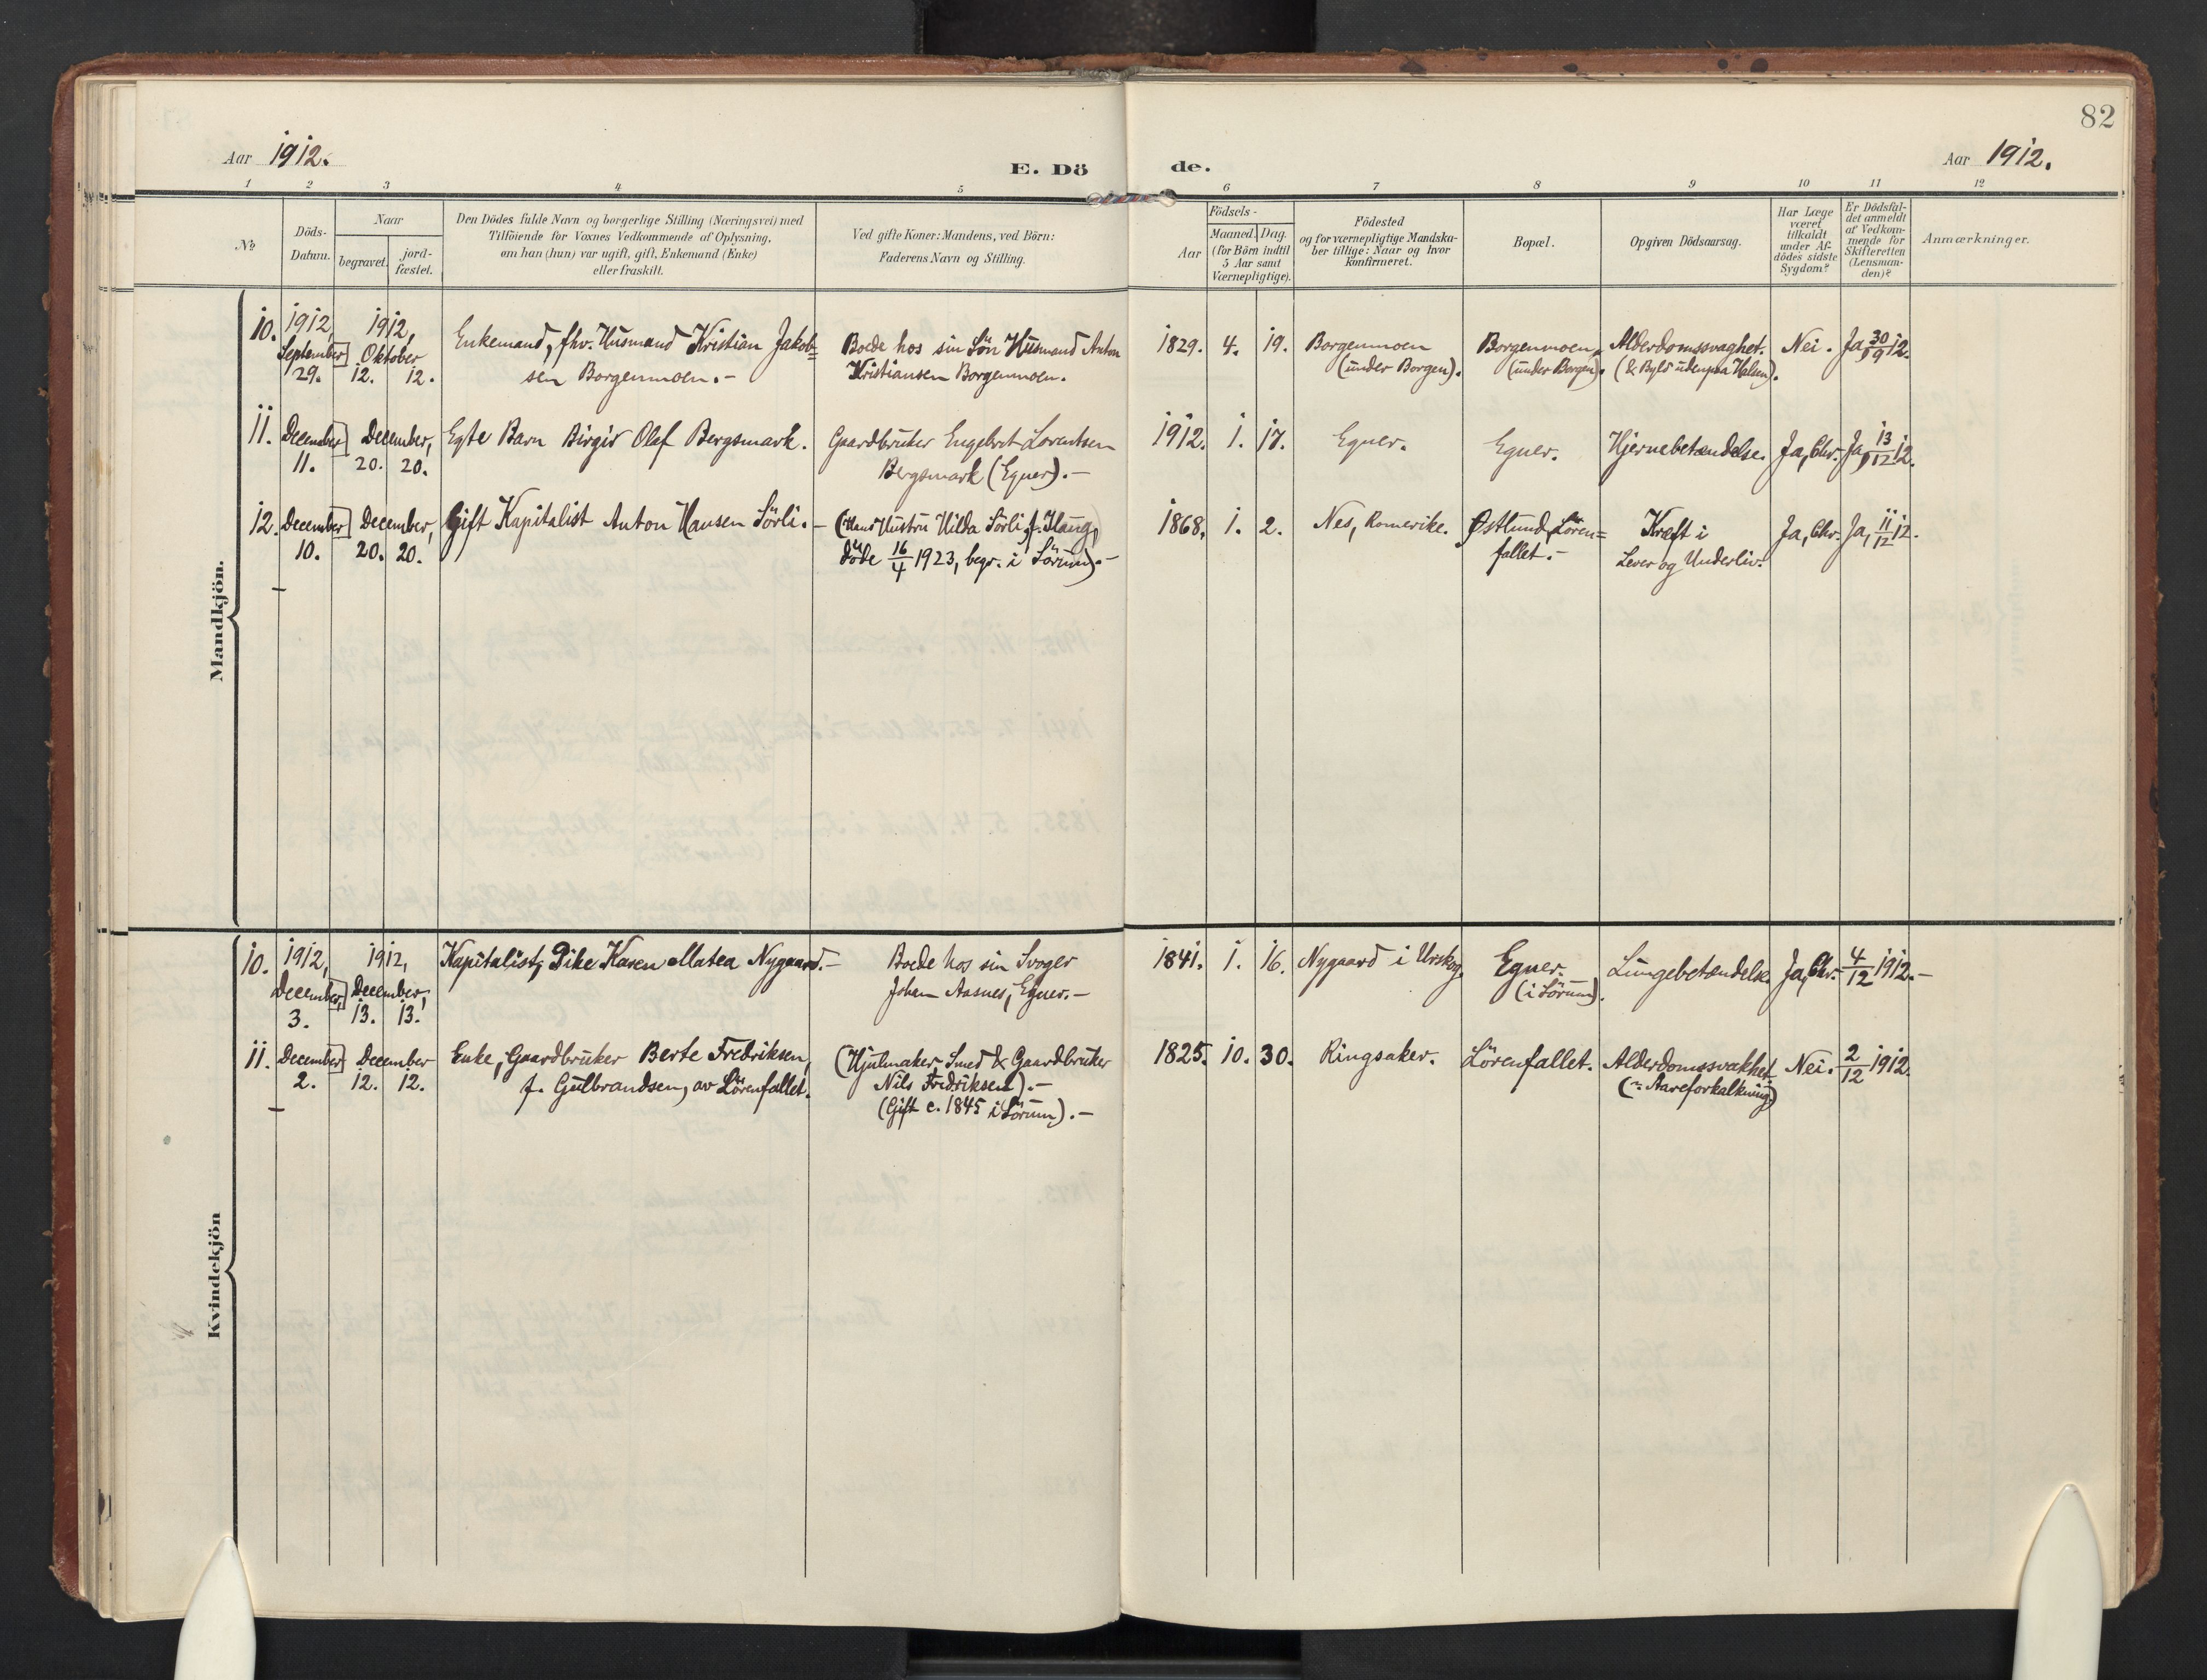 82
Aar 1912.
E. Dö
de.
Aar 1912.
1 2 3 4 5 6 7 8 9 10 11 12
№
Döds-
Datum.
Naar
begravet.
jord-
fæstet.
Den Dödes fulde Navn og borgerlige Stilling (Næringsvei) med
Tilföiende for Voxnes Vedkommende af Oplysning,
om han (hun) var ugift, gift, Enkemand (Enke)
eller fraskilt.
Ved gifte Koner: Mandens, ved Börn:
Faderens Navn og Stilling.
Födsels-
Aar
Maaned. Dag.
(for Börn indtil
5 Aar samt
Værnepligtige).
Födested
og for værnepligtige Mandska-
ber tillige: Naar og hvor
konfirmeret.
Bopæl.
Opgiven Dödsaarsag.
Har Læge
været
tilkaldt
under Af-
dödes sidste
Sygdom?
Er Dödsfal-
det anmeldt
af Vedkom-
mende for
Skifteretten
(Lensman-
den)?
Anmærkninger.
Mandkjön.
10. 1912, September 29. 1912, Oktober 12. 12.
Enkemand, fhv. Husmand Kristian Jakob=
sen Borgenmoen.-
Boede hos sin Sön Husmand Anton
Kristiansen Borgenmoen.
1829. 4. 19. Borgenmoen
(under Borgen).
Borgenmoen
(under Borgen).
Alderdomssvaghet.
(& Byld udenpaa Halsen).
Nei. Ja, 30/9 12.
11. December 11. December, 20. 20.
Egte Barn Birgir Olef Bergsmark.
Gaardbruker Engebret Lorentsen
Bergsmark (Egner).-
1912. 1. 17. Egner. Egner. Hjernebetændelse. Ja, Chr. Ja, 13/12 12.
12. December 10. December, 20. 20.
Gift Kapitalist Anton Hansen Sörli.-
(Hans Hustru Hilda Sörli f. Haug,
döde 16/4 1923, begr. i Sörum).-
1868. 1. 2. Nes, Romerike. Østlund, Lören=
fallet.-
Kræft i
Lever og Underliv.
Ja, Chr. Ja, 11/12 12.
Kvindekjön
10. 1912, December, 3. 1912, December, 13. 13.
Kapitalist, Pike Karen Matea Nygaard.-
Boede hos sin Svoger
Johan Aasnes, Egner.-
1841. 1. 16. Nygaard i Urskog. Egner.
(i Sörum).
Lungebetændelse. Ja, Chr. 4/12 1912.-
11. December 2. December 12. 12.
Enke, Gaardbruker Berte Fredriksen,
f. Gulbrandsen, av Lörenfallet.
(Hjulmaker, Smed & Gaardbruker
Nils Fredriksen).-
(Gift c. 1845 i Sörum).-
1825. 10. 30. Ringsaker. Lörenfallet. Alderdomssvakhet
(~ Aareforkalkning)
Nei. 2/12 1912.